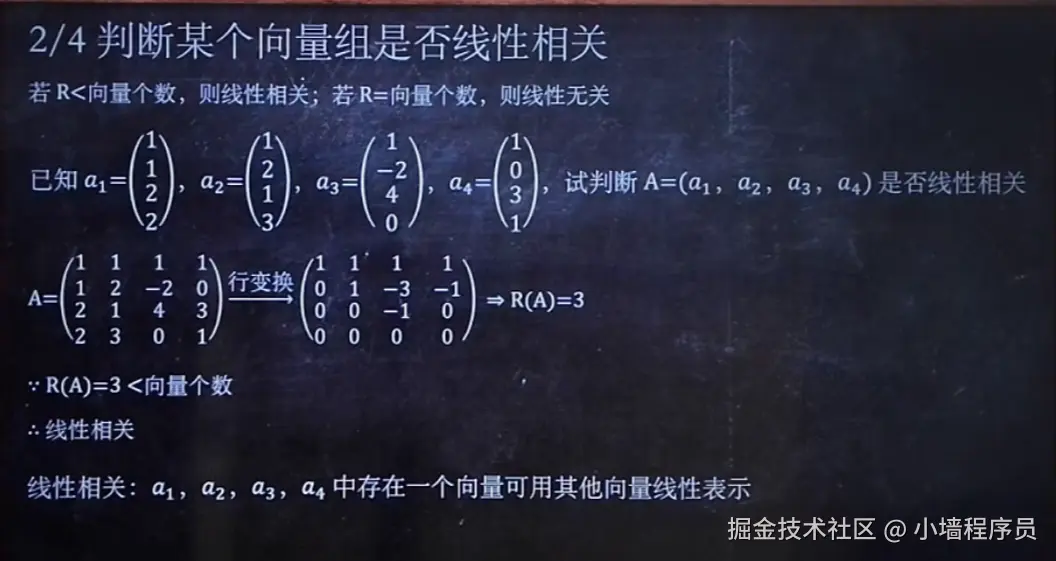 2/4 判断某个向量组是否线性相关
若 R<向量个数，则线性相关；若 R=向量个数，则线性无关
已知 a₁=(1 1 2 2)，a₂=(1 2 1 3)，a₃=(1 −2 4 0)，a₄=(1 0 3 1)，试判断 A=(a₁，a₂，a₃，a₄) 是否线性相关
A=(1 1 1 1 行变换 (1 1 1 1
1 2 −2 0 0 1 −3 −1
2 1 4 3 0 0 −1 0
2 3 0 1) 0 0 0 0) ⇒ R(A)=3
∵ R(A)=3 <向量个数
∴ 线性相关
线性相关：a₁，a₂，a₃，a₄ 中存在一个向量可用其他向量线性表示
掘金技术社区 @ 小墙程序员